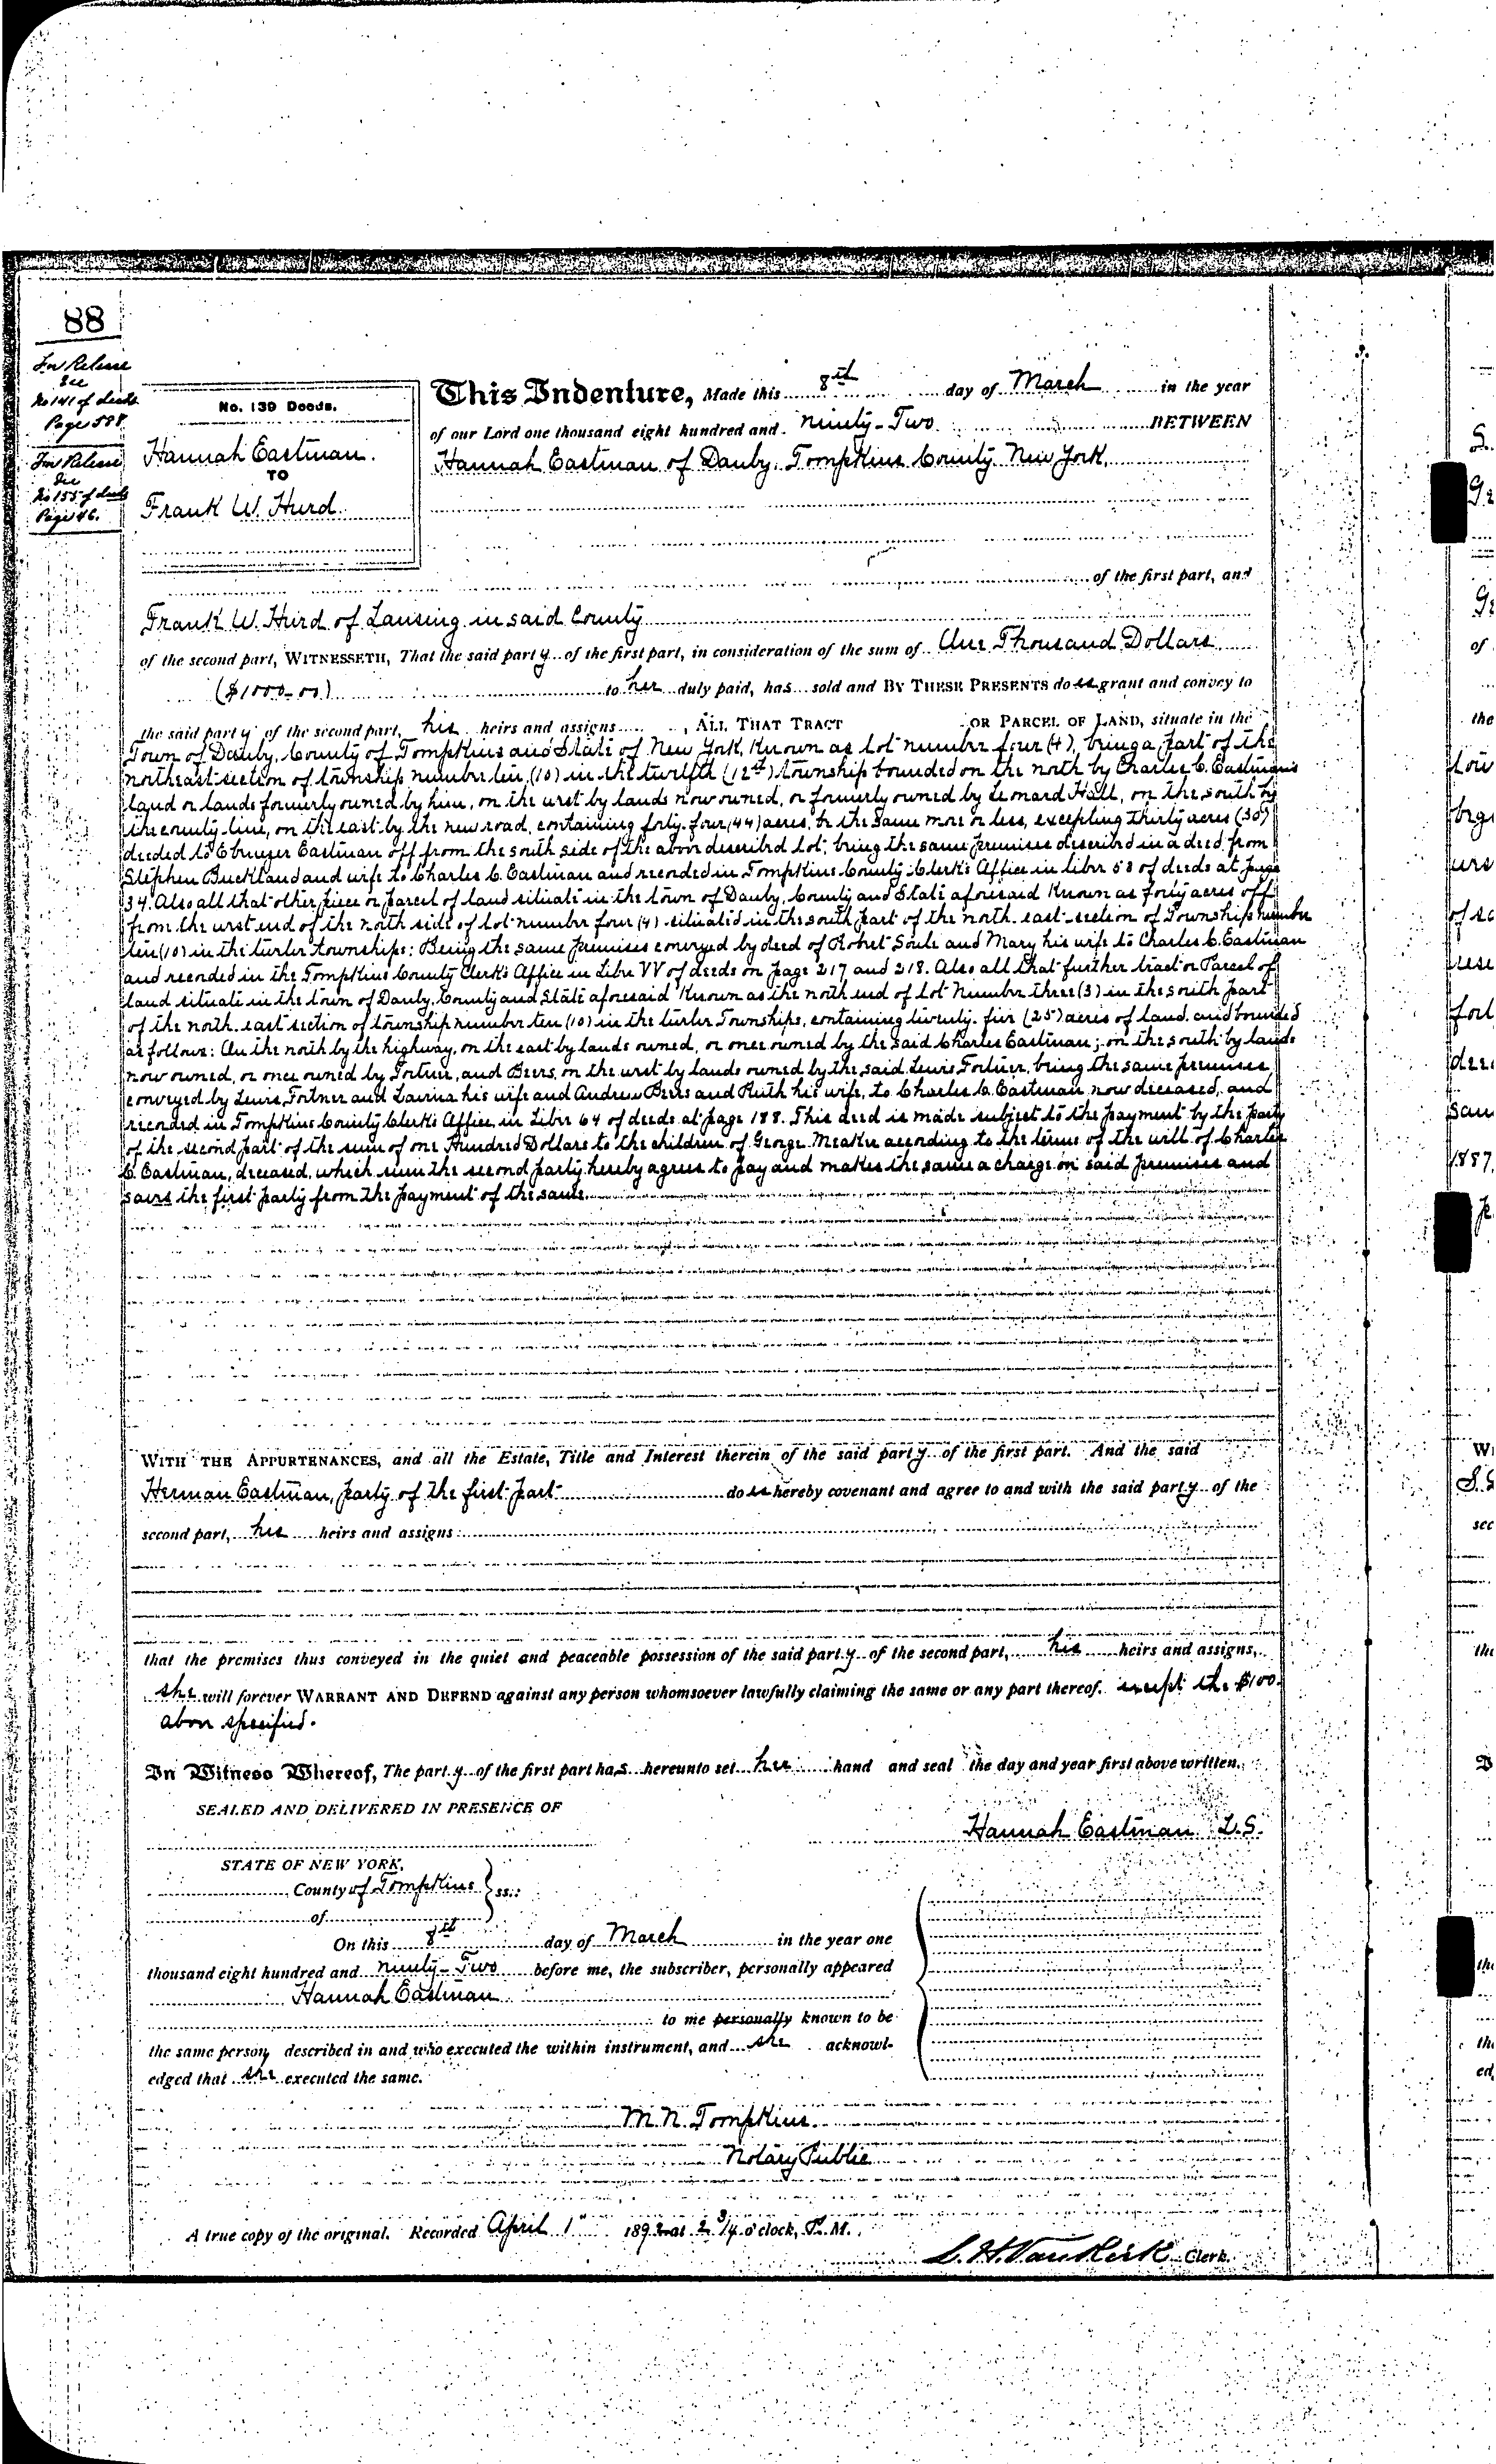 88
For Release
See
No 141 of deeds
Page 588
For Release
See
No 155 of deeds
Page 46.
No. 139 Deeds.
Hannah Eastman.
TO
Frank W. Hurd.
This Indenture, Made this 8th day of March in the year
of our Lord one thousand eight hundred and Ninety-Two BETWEEN
Hannah Eastman of Danby, Tompkins County New York,
of the first part, and
Frank W. Hurd of Lansing in said County
of the second part, WITNESSETH, That the said party of the first part, in consideration of the sum of One Thousand Dollars
($1000-00) to her duly paid, has sold and BY THESE PRESENTS does grant and convey to
the said party of the second part, his heirs and assigns, ALL THAT TRACT OR PARCEL OF LAND, situate in the
Town of Danby, County of Tompkins and State of New York, Known as lot number four (4), being a part of the
northeast section of township number ten (10) in the twelfth (12th) township bounded on the north by Charles C. Eastman's
land or lands formerly owned by him, on the west by lands now owned, or formerly owned by Leonard Hall, on the south by
the county line, on the east by the new road, containing forty-four (44) acres, be the same more or less, excepting thirty acres (30)
deeded to Ebenezer Eastman off from the south side of the above described lot; being the same premises described in a deed from
Stephen Buckland and wife to Charles C. Eastman and recorded in Tompkins County Clerk's Office in Liber 58 of deeds at page
34. Also all that other piece or parcel of land situate in the town of Danby, County and State aforesaid Known as forty acres off
from the west end of the north side of lot number four (4) situated in the south part of the north-east section of Township number
ten (10) in the twelve townships: Being the same premises conveyed by deed of Robert Soule and Mary his wife to Charles C. Eastman
and recorded in the Tompkins County Clerk's Office in Liber VV of deeds on page 217 and 218. Also all that further tract or Parcel of
land situate in the town of Danby, County and State aforesaid Known as the north end of lot Number three (3) in the south part
of the north-east section of township number ten (10) in the twelve Townships, containing twenty-five (25) acres of land and bounded
as follows: On the north by the highway, on the east by lands owned, or once owned by the said Charles Eastman; on the south by lands
now owned, or once owned by Fortner, and Beers, on the west by lands owned by the said Lewis Fortner, being the same premises
conveyed by Lewis Fortner and Lavina his wife and Andrew Beers and Ruth his wife, to Charles C. Eastman now deceased, and
recorded in Tompkins County Clerk's Office in Liber 64 of deeds at page 188. This deed is made subject to the payment by the party
of the second part of the sum of one Hundred Dollars to the children of George Meaker according to the terms of the will of Charles
C. Eastman, deceased, which sum the second party hereby agrees to pay and makes the same a charge on said premises and
saves the first party from the payment of the same.
WITH THE APPURTENANCES, and all the Estate, Title and Interest therein of the said party of the first part. And the said
Herman Eastman, party of the first part does hereby covenant and agree to and with the said party of the
second part, his heirs and assigns
that the premises thus conveyed in the quiet and peaceable possession of the said party of the second part, his heirs and assigns,
she will forever WARRANT AND DEFEND against any person whomsoever lawfully claiming the same or any part thereof. except the $100.
above specified.
In Witness Whereof, The party of the first part has hereunto set her hand and seal the day and year first above written.
SEALED AND DELIVERED IN PRESENCE OF
Hannah Eastman L.S.
STATE OF NEW YORK,
County of Tompkins ss.:
of
On this 8th day of March in the year one
thousand eight hundred and ninety-Two before me, the subscriber, personally appeared
Hannah Eastman
to me personally known to be
the same person described in and who executed the within instrument, and she acknowl-
edged that she executed the same.
M. N. Tompkins.
Notary Public
A true copy of the original. Recorded April 1" 1892 at 2 3/4 o'clock, P. M.
L. H. Van Kirk Clerk.